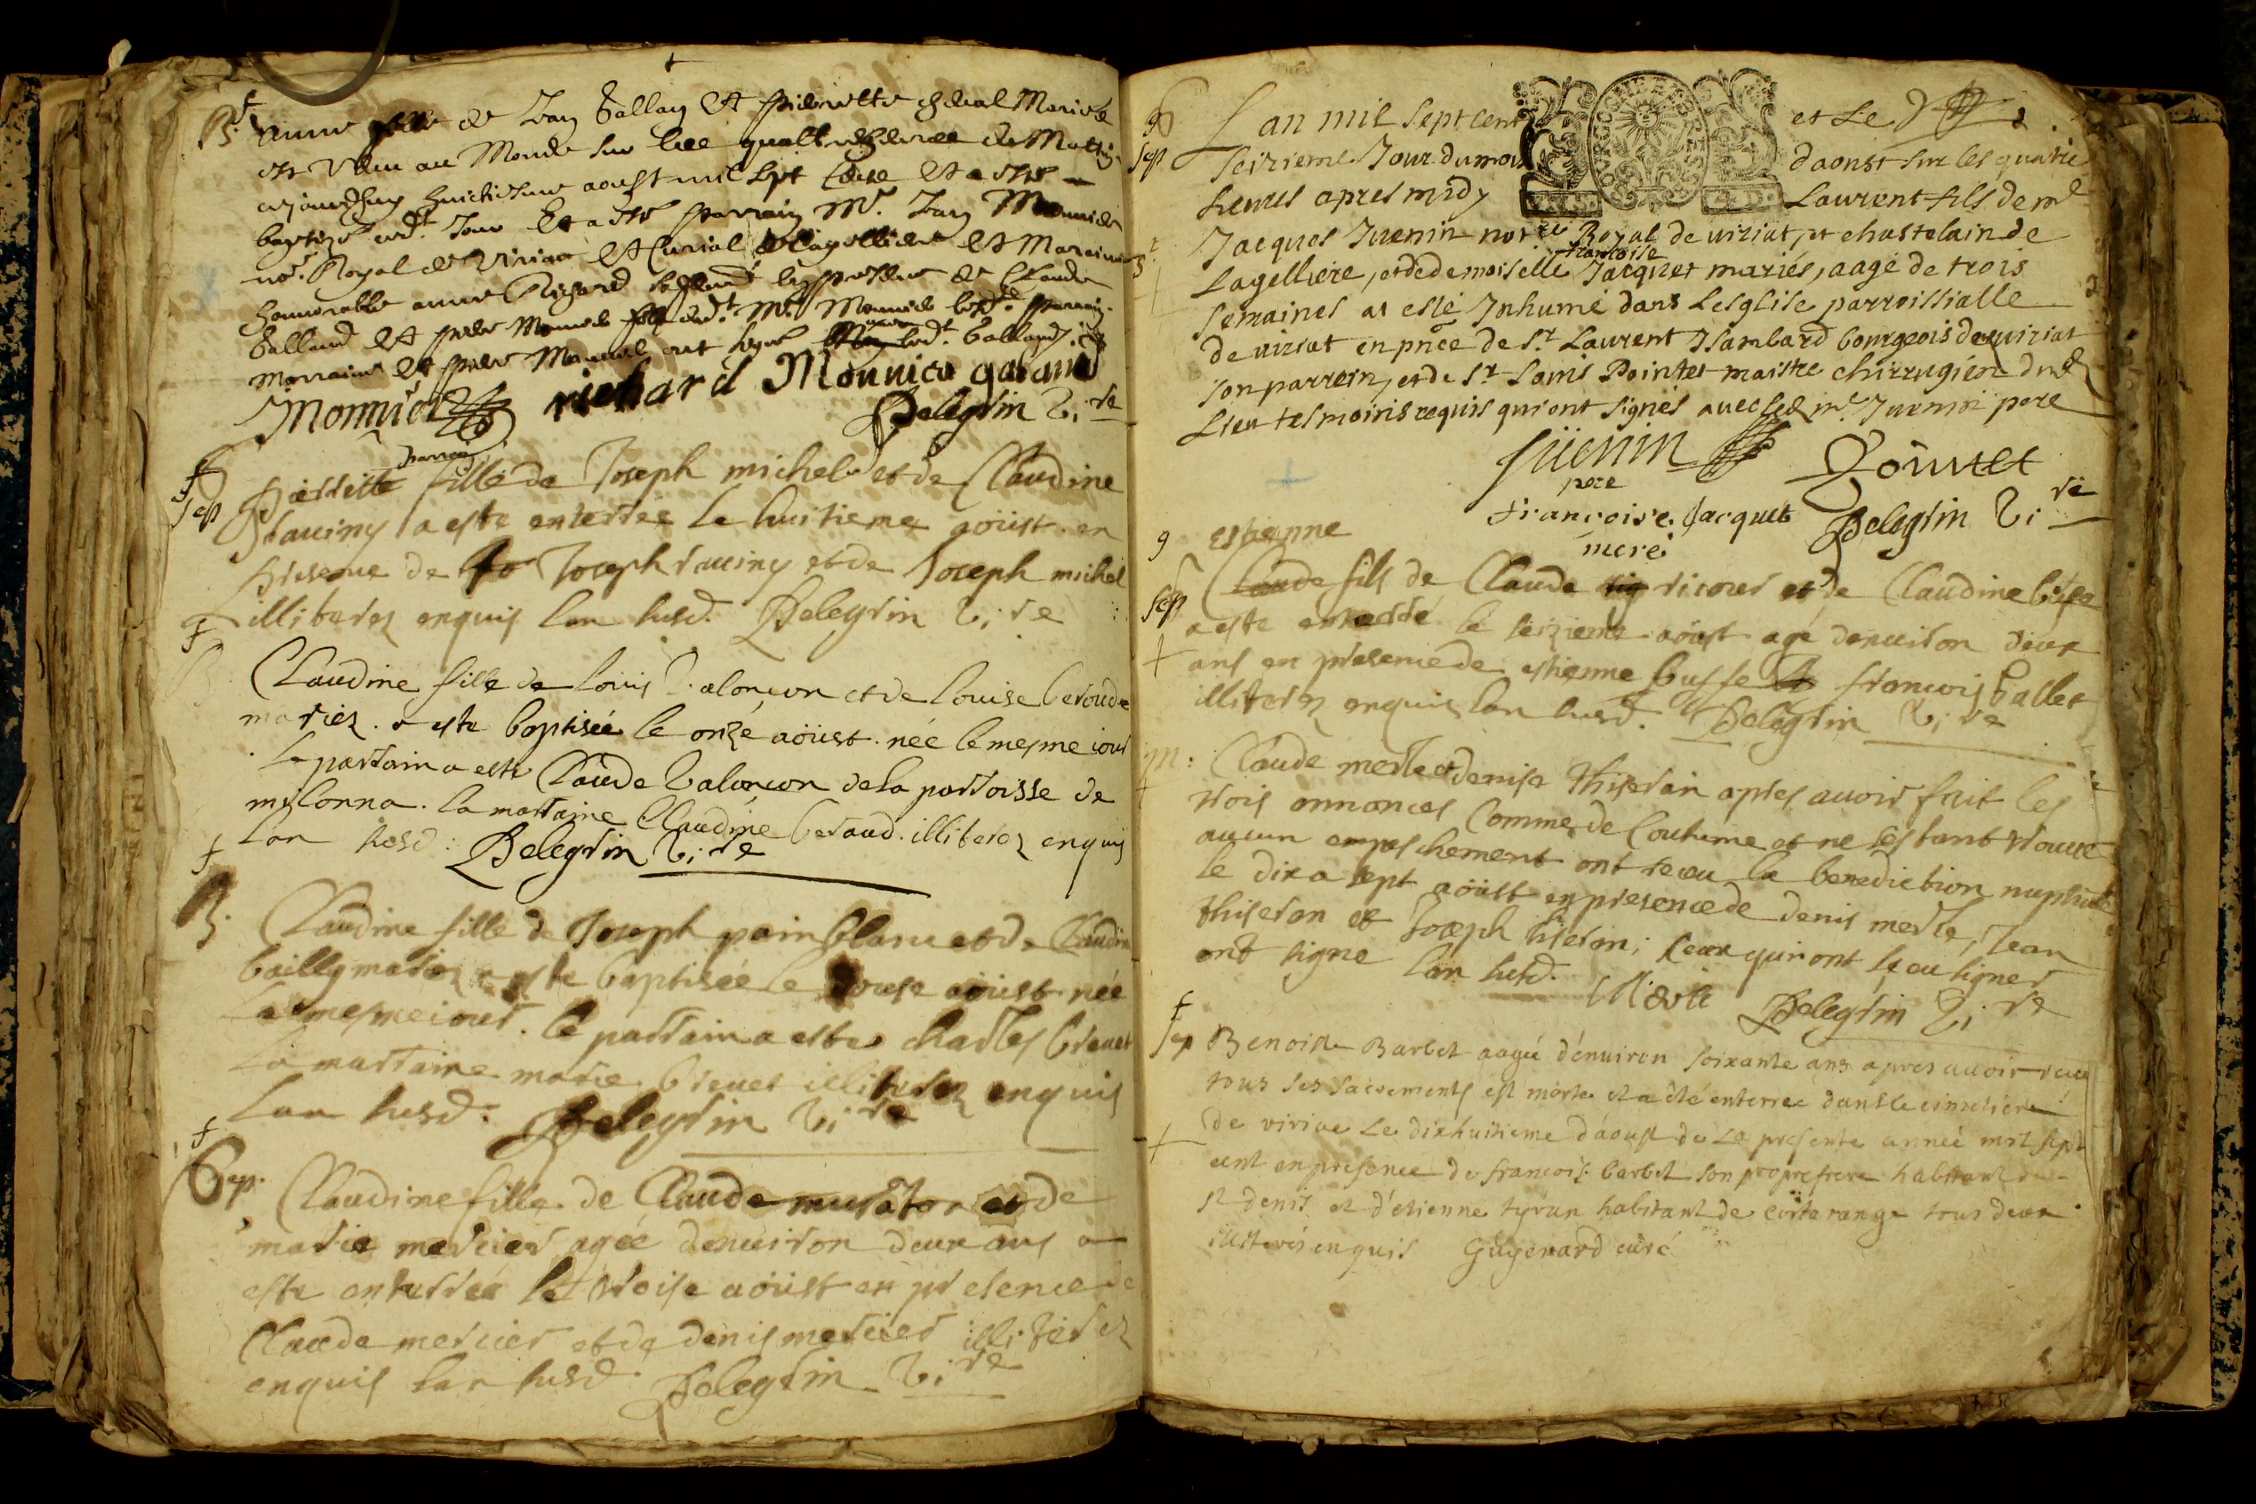 B. Anne fille de Jean Balland et pierrette cheval Mariés
est venu au Monde sur les quattre heures du Mattin
aujourdhuy huictiesme aoust mil sept
baptisé led.t Jour Et a esté parrain M.e Jean Monnier
no.re Royal de Viriat et Curial de Lagelliere et Maraine
honnorable anne Richard de Claude
Balland et Monnier led.t M.e Monnier parrain
Marraine et Monnier ont signé led.t Balland
Monnier richard Monnier galand
Delegrin Vi.re
Sep pierrette fille de Joseph michel et de Claudine
raviny a este enterrée le huitieme aoust en
presence de Joseph raviny et de Joseph michel
illiterez enquis lan susd. Delegrin Vi.re
Claudine fille de Louis Valonçon et de Louise beroude
mariez a este baptisée le onze aoust née le mesme iour
le parrain a este Claude Valonçon de la parroisse de
mylonna. la marraine Claudine beraud illiterez enquis
lan susd: Delegrin Vi.re
B. Claudine fille de Joseph pain blanc et de Claudine
bailly mariez a este baptisée le douse aoust née
le mesme iour. le parrain a este Charles brevet
la marraine marie brevet illiterez enquis
lan susd: Delegrin Vi.re
Sep. Claudine fille de Claude musaton et de
marie mercier agée denuiron deux ans a
este enterrée le troise aoust en presence de
Claude mercier et de denis mercier illiterez
enquis lan susd. Delegrin Vi.re
Sep Lan mil sept cent et Le
Seizieme Jour du mois daoust sur les quatre
heures apres midy Laurent fils de m.e
Jacques Juenin no.re Royal de uiriat, et chastelain de
francoise
Lagelliere, et de demoiselle Jacquet mariés, aagé de trois
semaines at esté Inhumé dans Lesglise parroissialle
de uiriat en pnce de S.r Laurent Isambard bourgeois de uiriat
son parrein, et de S.r Louis Pointet maistre chirrugien dud
Lieu tesmoins requis qui ont signés auec led m.e Juenin pere
Juenin Pointet
pere
francoise Jacquet Delegrin Vi.re
mere
9 estienne
Sep Claude fils de Claude ricour et de Claudine
a este enterré le seizieme aoust agé denuiron deux
ans en presence de estienne buffe francois ballet
illiterez enquis lan susd. Delegrin Vi.re
M: Claude merle et denise thiseran apres auoir fait les
trois annonces Comme de Coutume et ne sestant trouvé
aucun empeschement ont receu la benediction nuptiale
le dix a sept aoust en presence de denis merle, Jean
thiseron et Joseph tiseron; ceux qui ont sceu signer
ont signé lan susd. Merle Delegrin Vi.re
Sep Benoiste Barbet aagée d'enuiron soixante ans apres auoir receu
tous ses sacrements est morte et a été enterrée dans le cimetiere
de viriat Le dixhuitieme d'aoust de La presente année mil sept
cent en presence de francois barbet son propre frere habitant de
St denis et d'etienne tyran habitant de tous deux
illiteres enquis Guyenard curé